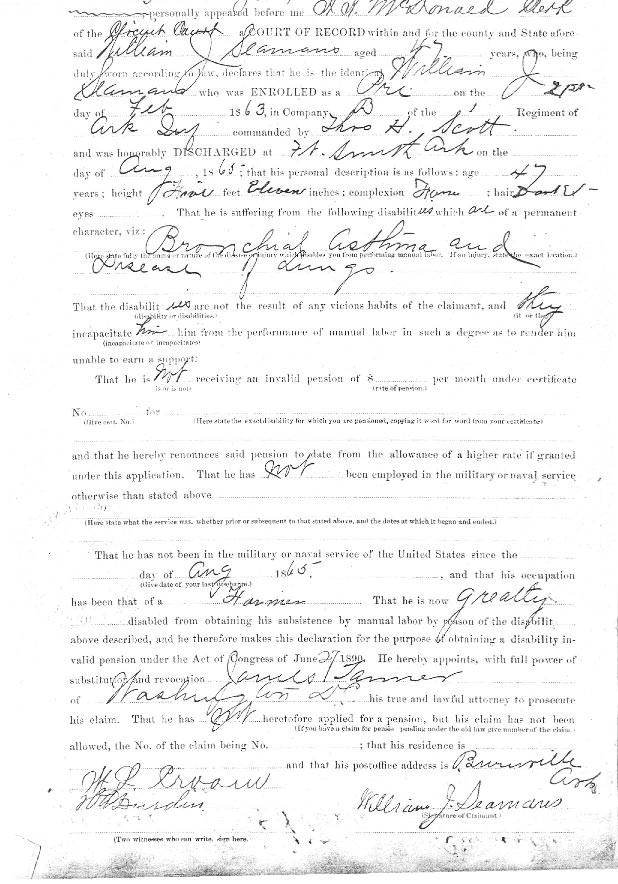 personally appeared before me McDonald Clerk
of the Circuit Court a COURT OF RECORD within and for the county and State afore
said William J Seamans aged 47 years, who, being
duly sworn according to law, declares that he is the identical William J
Seamans who was ENROLLED as a Pri on the
day of Feb 1863, in Company B of the 1" Regiment of
Ark Inf commanded by Thos H. Scott
and was honorably DISCHARGED at Ft. Smith Ark on the
day of Aug, 1865; that his personal description is as follows: age 47
years; height Five feet Eleven inches; complexion ; hair
eyes . That he is suffering from the following disabilities which are of a permanent
character, viz: Bronchial Asthma and
(Here state fully the name or nature of the disease or injury which disables you from performing manual labor. If an injury, state the exact location.)
Disease of Lungs.
That the disabilities are not the result of any vicious habits of the claimant, and they
(disability or disabilities.) (it or they)
incapacitate him him from the performance of manual labor in such a degree as to render him
(incapacitate or incapacitates)
unable to earn a support:
That he is Not receiving an invalid pension of $ per month under certificate
is or is not (rate of pension.)
No. for
(Give cert. No.) (Here state the exact disability for which you are pensioned, copying it word for word from your certificate)
and that he hereby renounces said pension to date from the allowance of a higher rate if granted
under this application. That he has Not been employed in the military or naval service
otherwise than stated above
(Here state what the service was, whether prior or subsequent to that stated above, and the dates at which it began and ended.)
That he has not been in the military or naval service of the United States since the
day of Aug 1865. , and that his occupation
(Give date of your last discharge.)
has been that of a Farmer That he is now Greatly
disabled from obtaining his subsistence by manual labor by reason of the disabilit
above described, and he therefore makes this declaration for the purpose of obtaining a disability in-
valid pension under the Act of Congress of June 27 1890. He hereby appoints, with full power of
substitution and revocation James Tanner
of Washington D C his true and lawful attorney to prosecute
his claim. That he has Not heretofore applied for a pension, but his claim has not been
(If you have a claim for pension pending under the old law give number of the claim.)
allowed, the No. of the claim being No. ; that his residence is
and that his postoffice address is Burnville
Ark
William J. Seamans
(Signature of Claimant.)
(Two witnesses who can write, sign here.